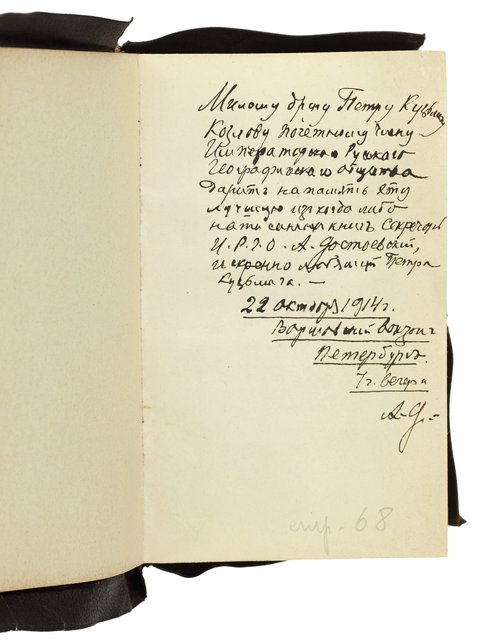 Милому другу Петру Кузьмичу
Козлову почётному члену
Императорского Русского
Географического общества
даритъ на память эту
лучшую изъ когда либо
написанныхъ книгъ Секретарь
И.Р.Г.О. А. Достоевский,
искренно любящий Петра
Кузьмича. —
22 октября 1914 г.
Варшавский вокзал
Петербургъ.
7 ч. вечера
А. Д. —
стр. 68